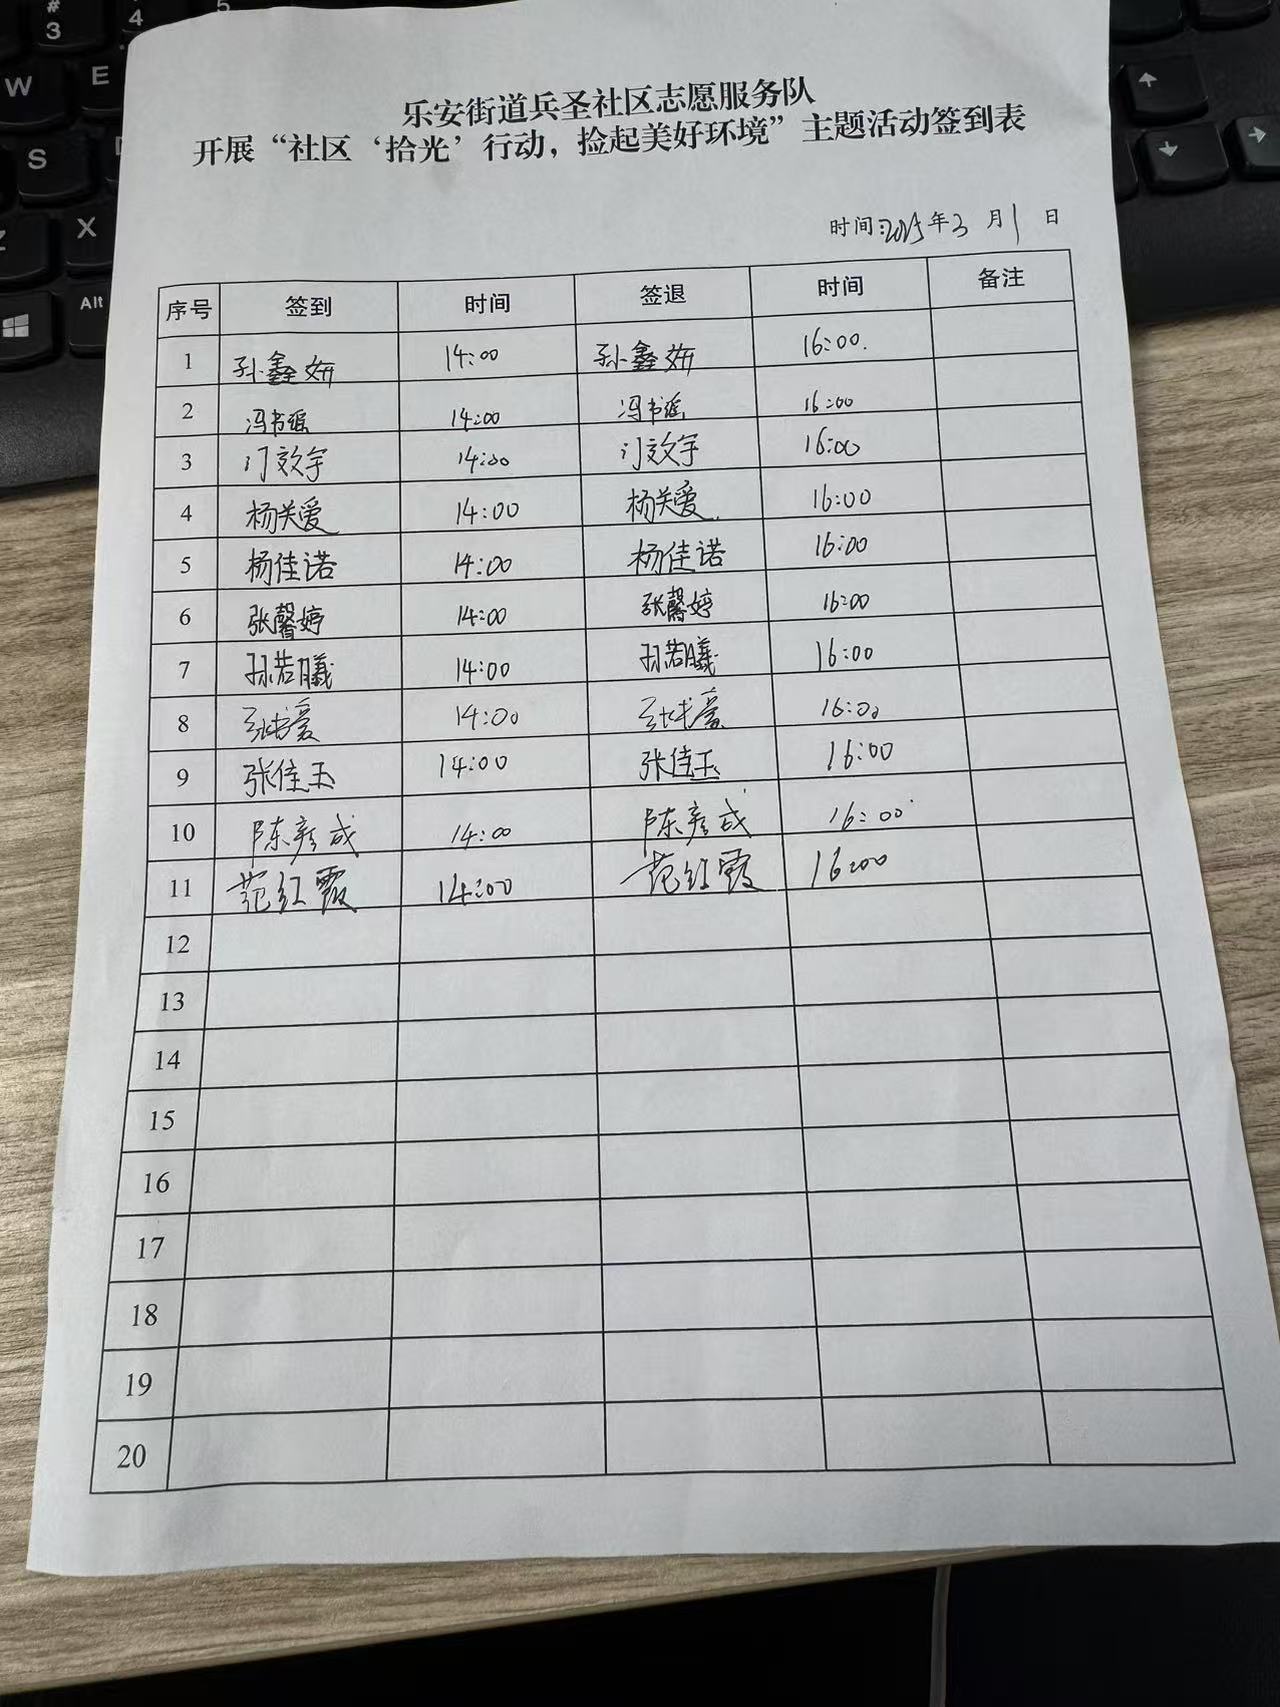 乐安街道兵圣社区志愿服务队
开展“社区‘拾光’行动，捡起美好环境”主题活动签到表
时间:2025年3月1日
序号 签到 时间 签退 时间 备注
1 孙鑫妍 14:00 孙鑫妍 16:00.
2 冯书瑶 14:00 冯书瑶 16:00
3 门效宇 14:00 门效宇 16:00
4 杨关爱 14:00 杨关爱 16:00
5 杨佳诺 14:00 杨佳诺 16:00
6 张馨婷 14:00 张馨婷 16:00
7 孙若曦 14:00 孙若曦 16:00
8 14:00 16:00
9 张佳玉 14:00 张佳玉 16:00
10 陈彦成 14:00 陈彦成 16:00
11 范红霞 14:00 范红霞 16:00
12
13
14
15
16
17
18
19
20